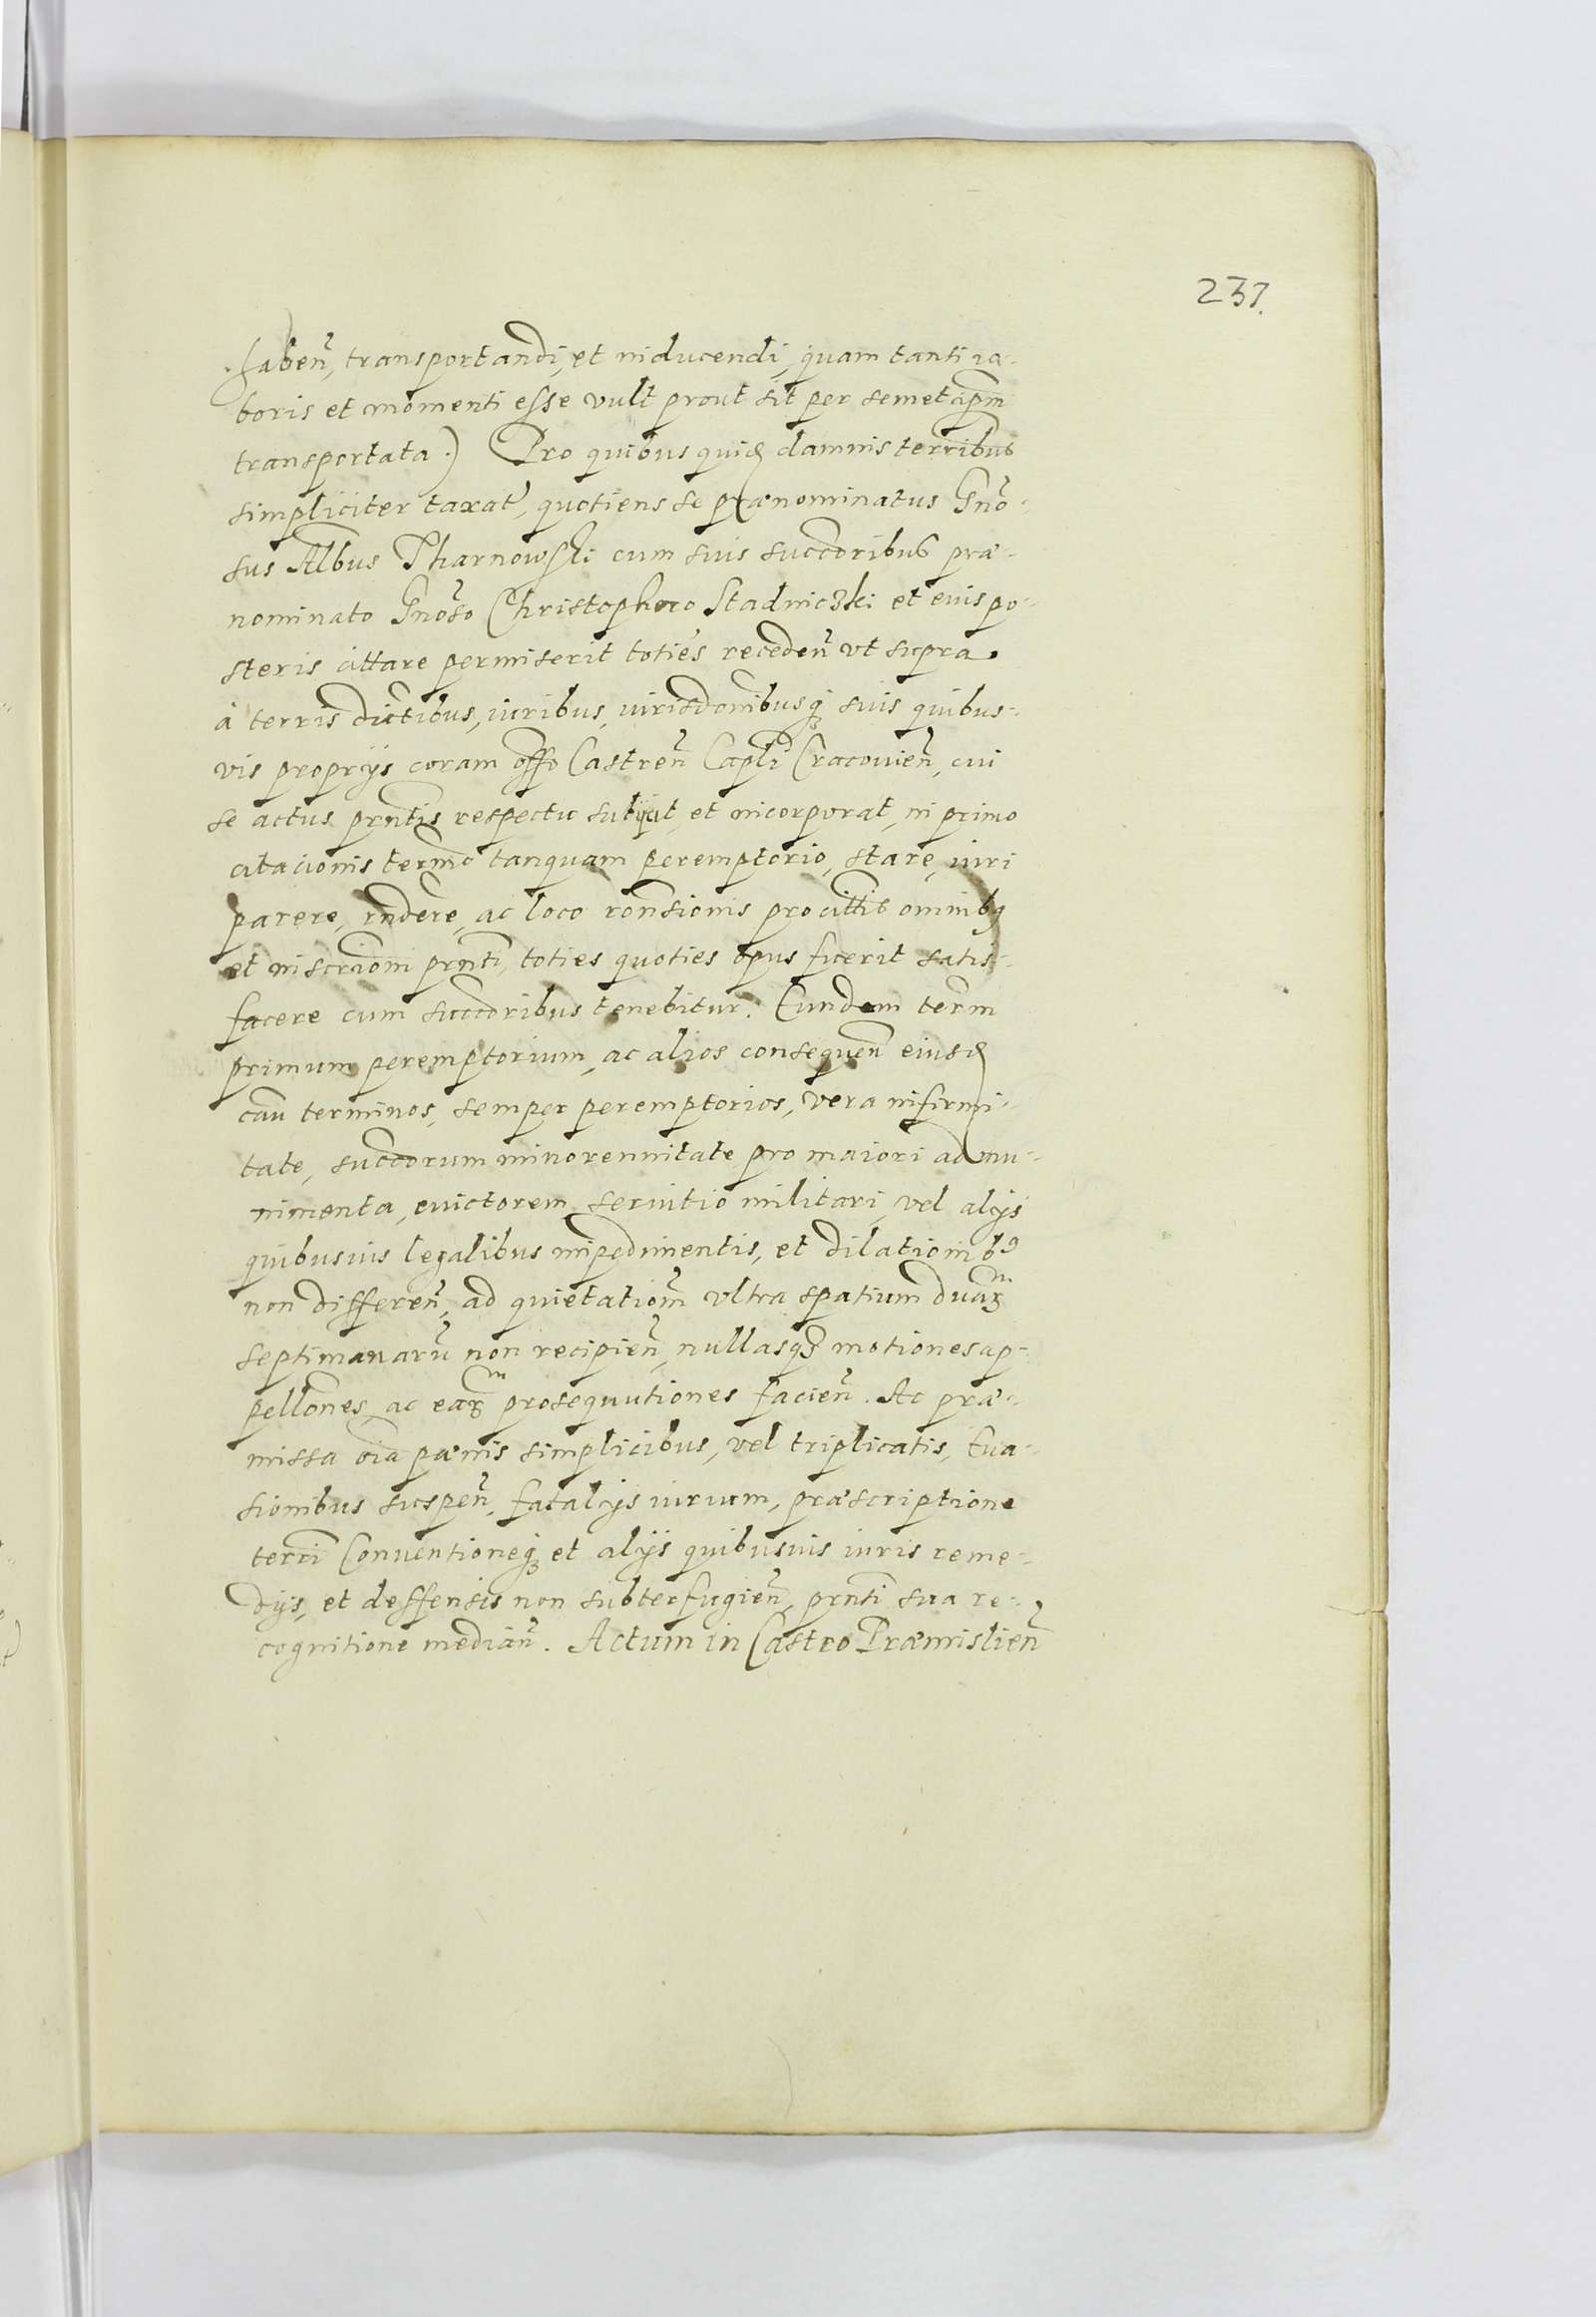 237.
habeñ, transportandi, et inducendi, quam tanti ra-
boris et momenti esse vult prout sit per semet ipm
transportata.) Pro quibus quid damnis terribus
simpliciter taxat, quotiens se prænominatus Gño-
sus Albus Tharnowski cum suis succoribus præ-
nominato Gñoso Christophoro Stadniczki et euis po-
steris cittare permiserit toties recedeñ vt supra
à terris dictibus, iuribus, iurisdonibusq suis quibus-
vis proprijs coram offo Castreñ Capli Cracouieñ, cui
se actus prntis respectu subijcit, et incorporat, in primo
citacionis termo tanquam peremptorio, stare, iuri
parere, rndere, ac loco ronsionis pro cittis omnibq
et inscrioni prnti, toties quoties opus fuerit satis-
facere cum succoribus tenebitur. Eundem term
primum peremptorium, ac alios consequeñ eiusd
cau terminos, semper peremptorios, vera infirmi-
tate, succorum minorennitate pro maiori ad mu-
nimenta, euictorem, seruitio militari, vel alijs
quibusuis legalibus impedimentis, et dilationib9
non differeñ, ad quietationm vltra spatium duarm
septimanarũ non recipieñ, nullasq3 motiones ap-
pellones, ac earm prosequutiones facieñ. Ac præ-
missa oia pænis simplicibus, vel triplicatis, Eua-
sionibus suspeñ, fatalijs iurium, præscriptione
terri Conuentioneq3 et alijs quibusuis iuris reme-
dijs, et deffensis non subterfugieñ, prnti sua re-
cognitione mediañ. Actum in Castro Præmislieñ